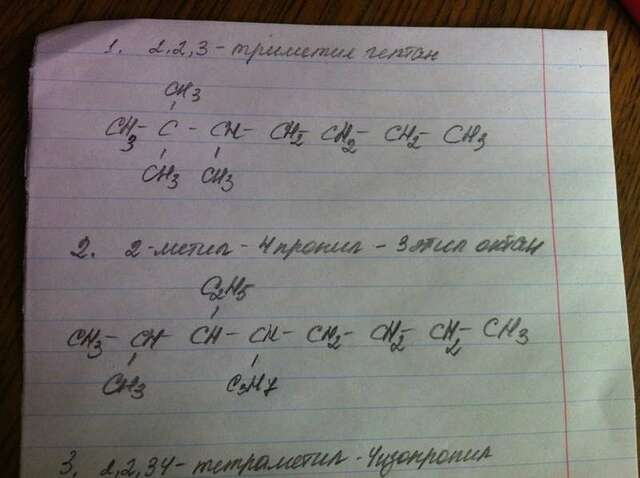 1. 2,2,3 - триметил гептан
CH3
CH3 - C - CH - CH2 - CH2 - CH2 - CH3
CH3 CH3
2. 2-метил - 4 пропил - 3 этил октан
C2H5
CH3 - CH - CH - CH - CH2 - CH2 - CH2 - CH3
CH3 C3H7
3. 2,2,3 4 - тетраметил - 4 изопропил